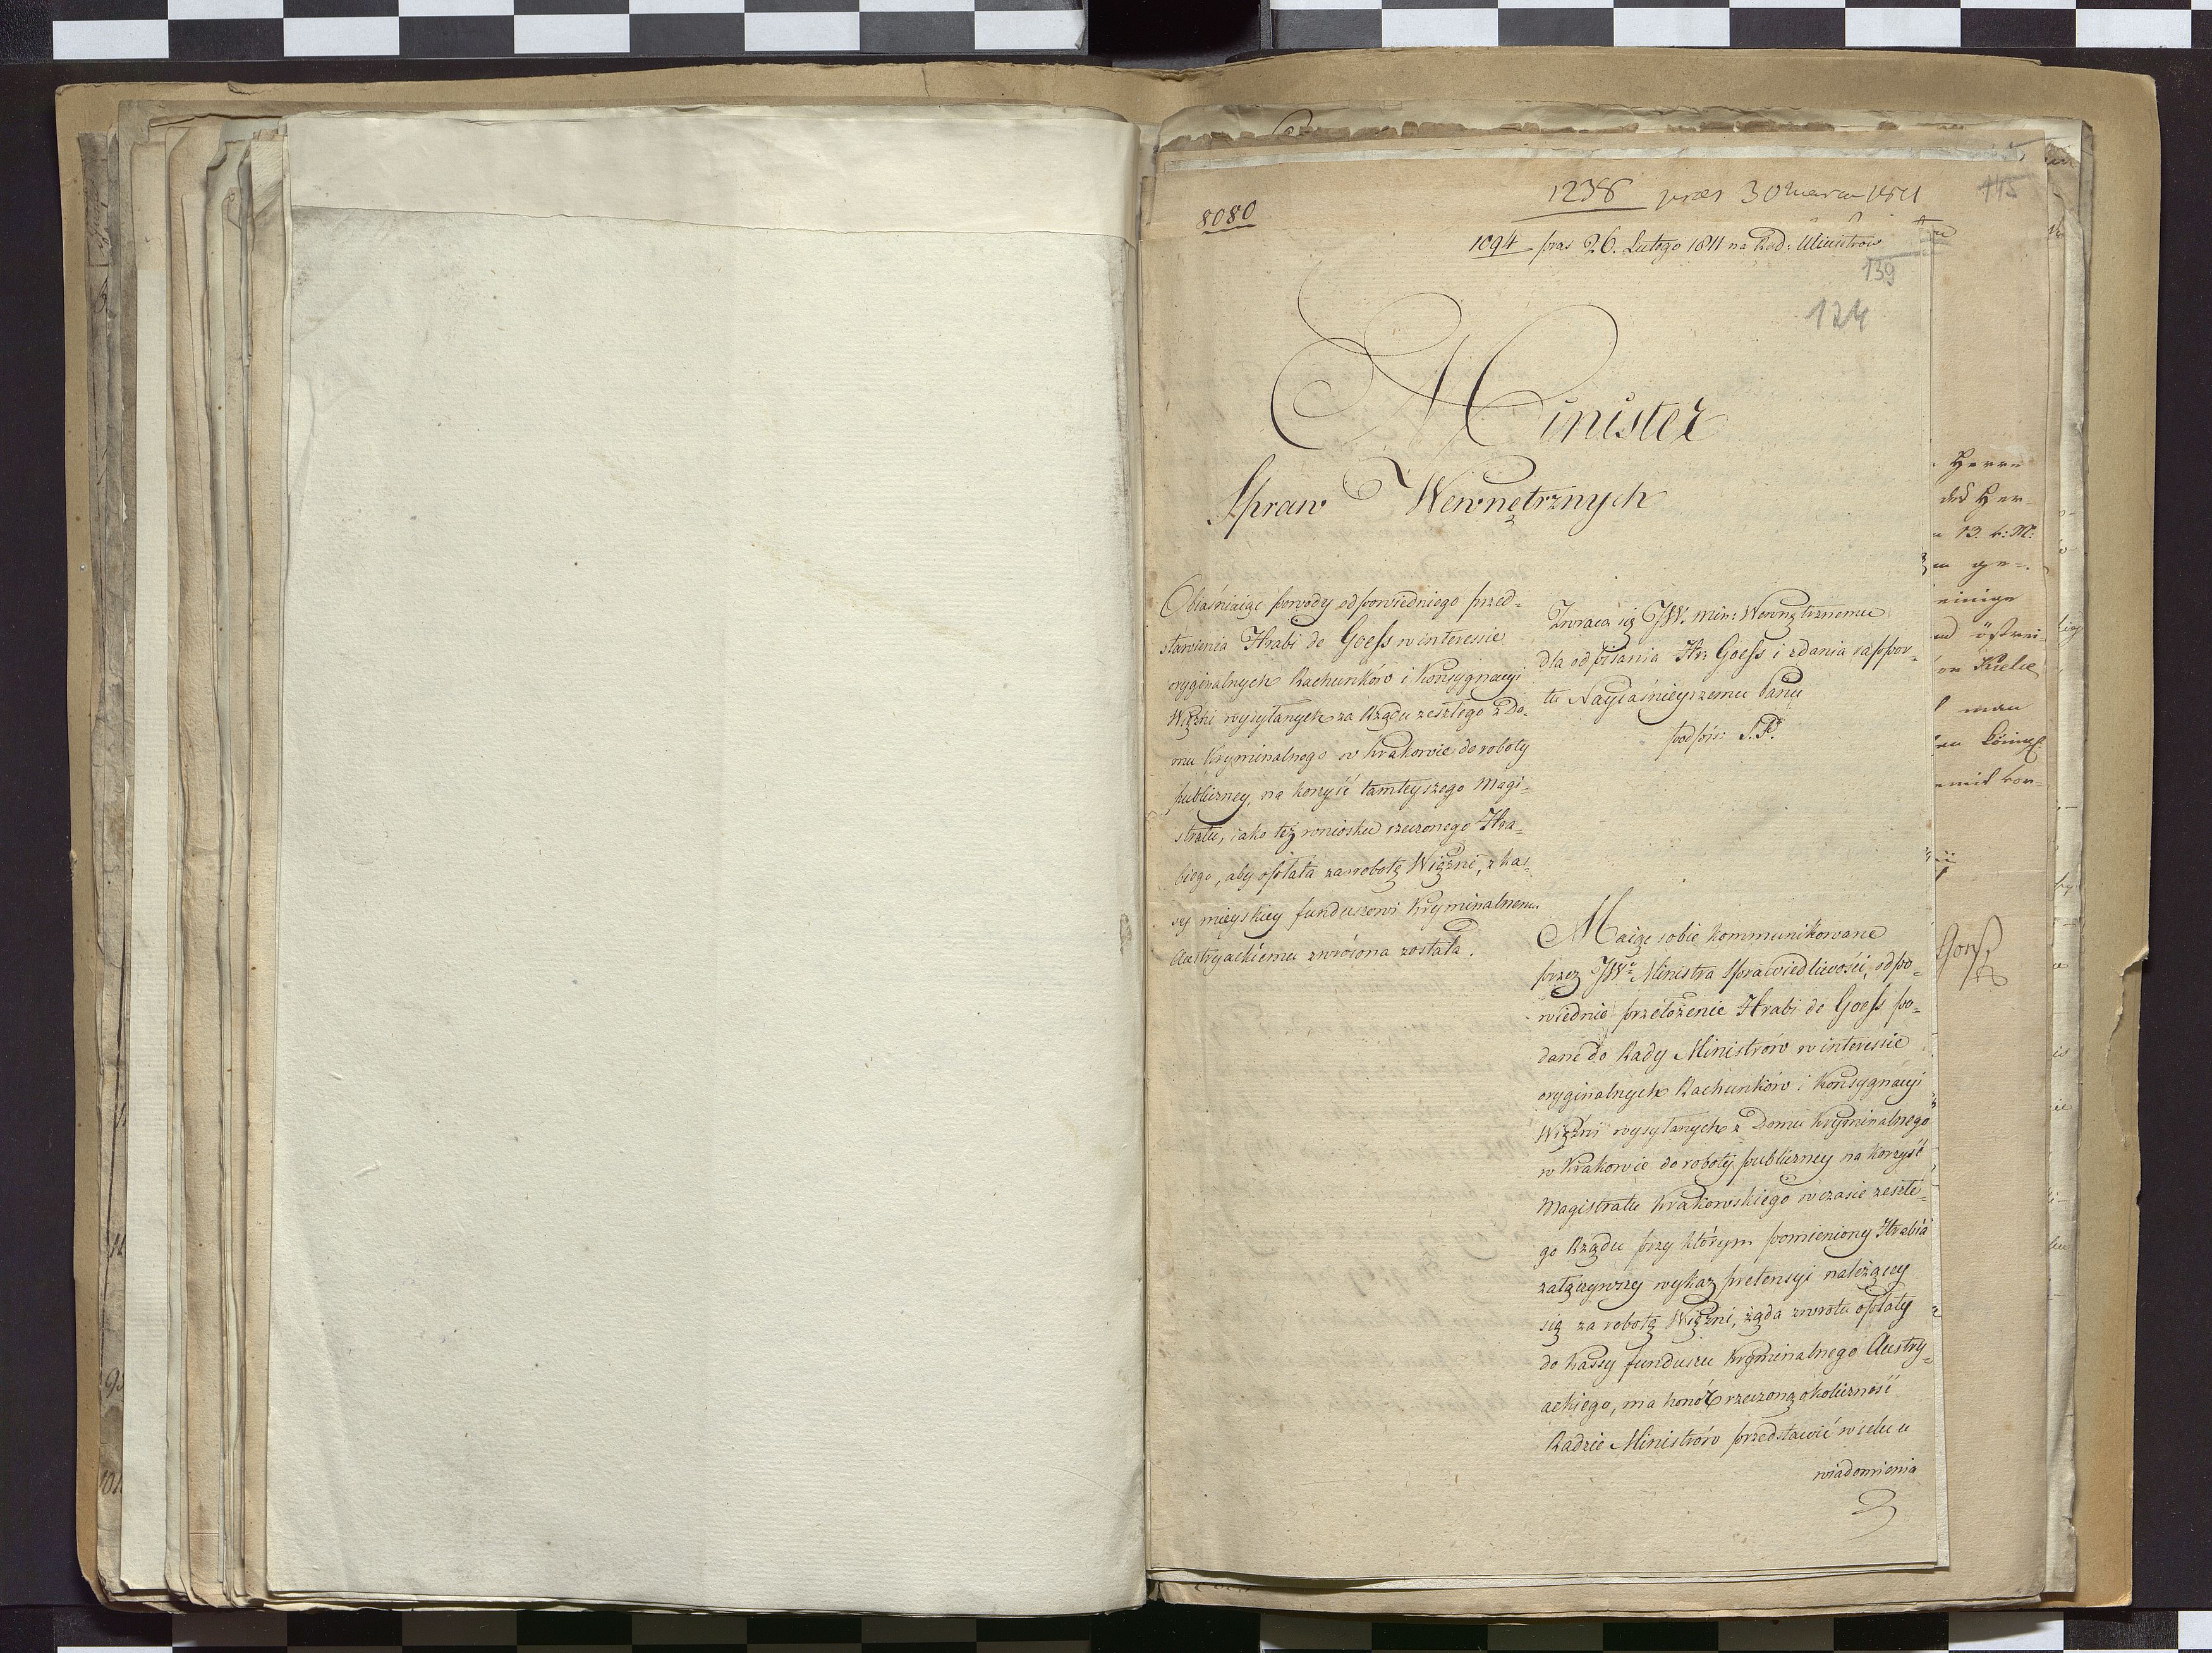 8080
1238 pres 30 Marca 1811
115
1094 pras 26. Lutego 1811 na Rad: Ministrow
139
124
Minister
Spraw Wewnętrznych
Obiaśniaiąc powody odpowiedniego przed=
stawienia Hrabi de Goeſs w interessie
oryginalnych Rachunków i Konsygnacyi
Więźni wysyłanych za Rządu zeszłego z Do=
mu Kryminalnego w Krakowie do roboty
publiczney, na korzyść tamteyszego Magi=
stratu, iako też wniosku rzeczonego Hra=
biego, aby opłata za robotę Więźni, z kas=
sy mieyskiey funduszowi Kryminalnemu
Austryackiemu zwrócona została.
Zwraca się JW: Min: Wewnętrznemu
dla odpisania Hr: Goeſs i zdania rappor=
tu Nayiaśnieyszemu Panu
podpis: S.P.
Maiąc sobie kommunikowane
przez JWo Ministra Sprawiedliwości, odpo=
wiednie przełożenie Hrabi de Goeſs po=
dane do Rady Ministrów w interessie
oryginalnych Rachunków i Konsygnacyi
Więźni wysyłanych z Domu Kryminalnego
w Krakowie do roboty publiczney na korzyść
Magistratu Krakowskiego w czasie zeszłe=
go Rządu przy którym pomieniony Hrabia
załączywszy wykaz pretensyi należącey
się za robotę Więźni, żąda zwrotu opłaty
do Kassy funduszu Kryminalnego Austry=
ackiego, ma honor rzeczoną okoliczność
Radzie Ministrów przedstawić w celu u
wiadomienia
Herrn
des Her
13. k: M:
ge=
einige
östrei=
Kielce
man
könig